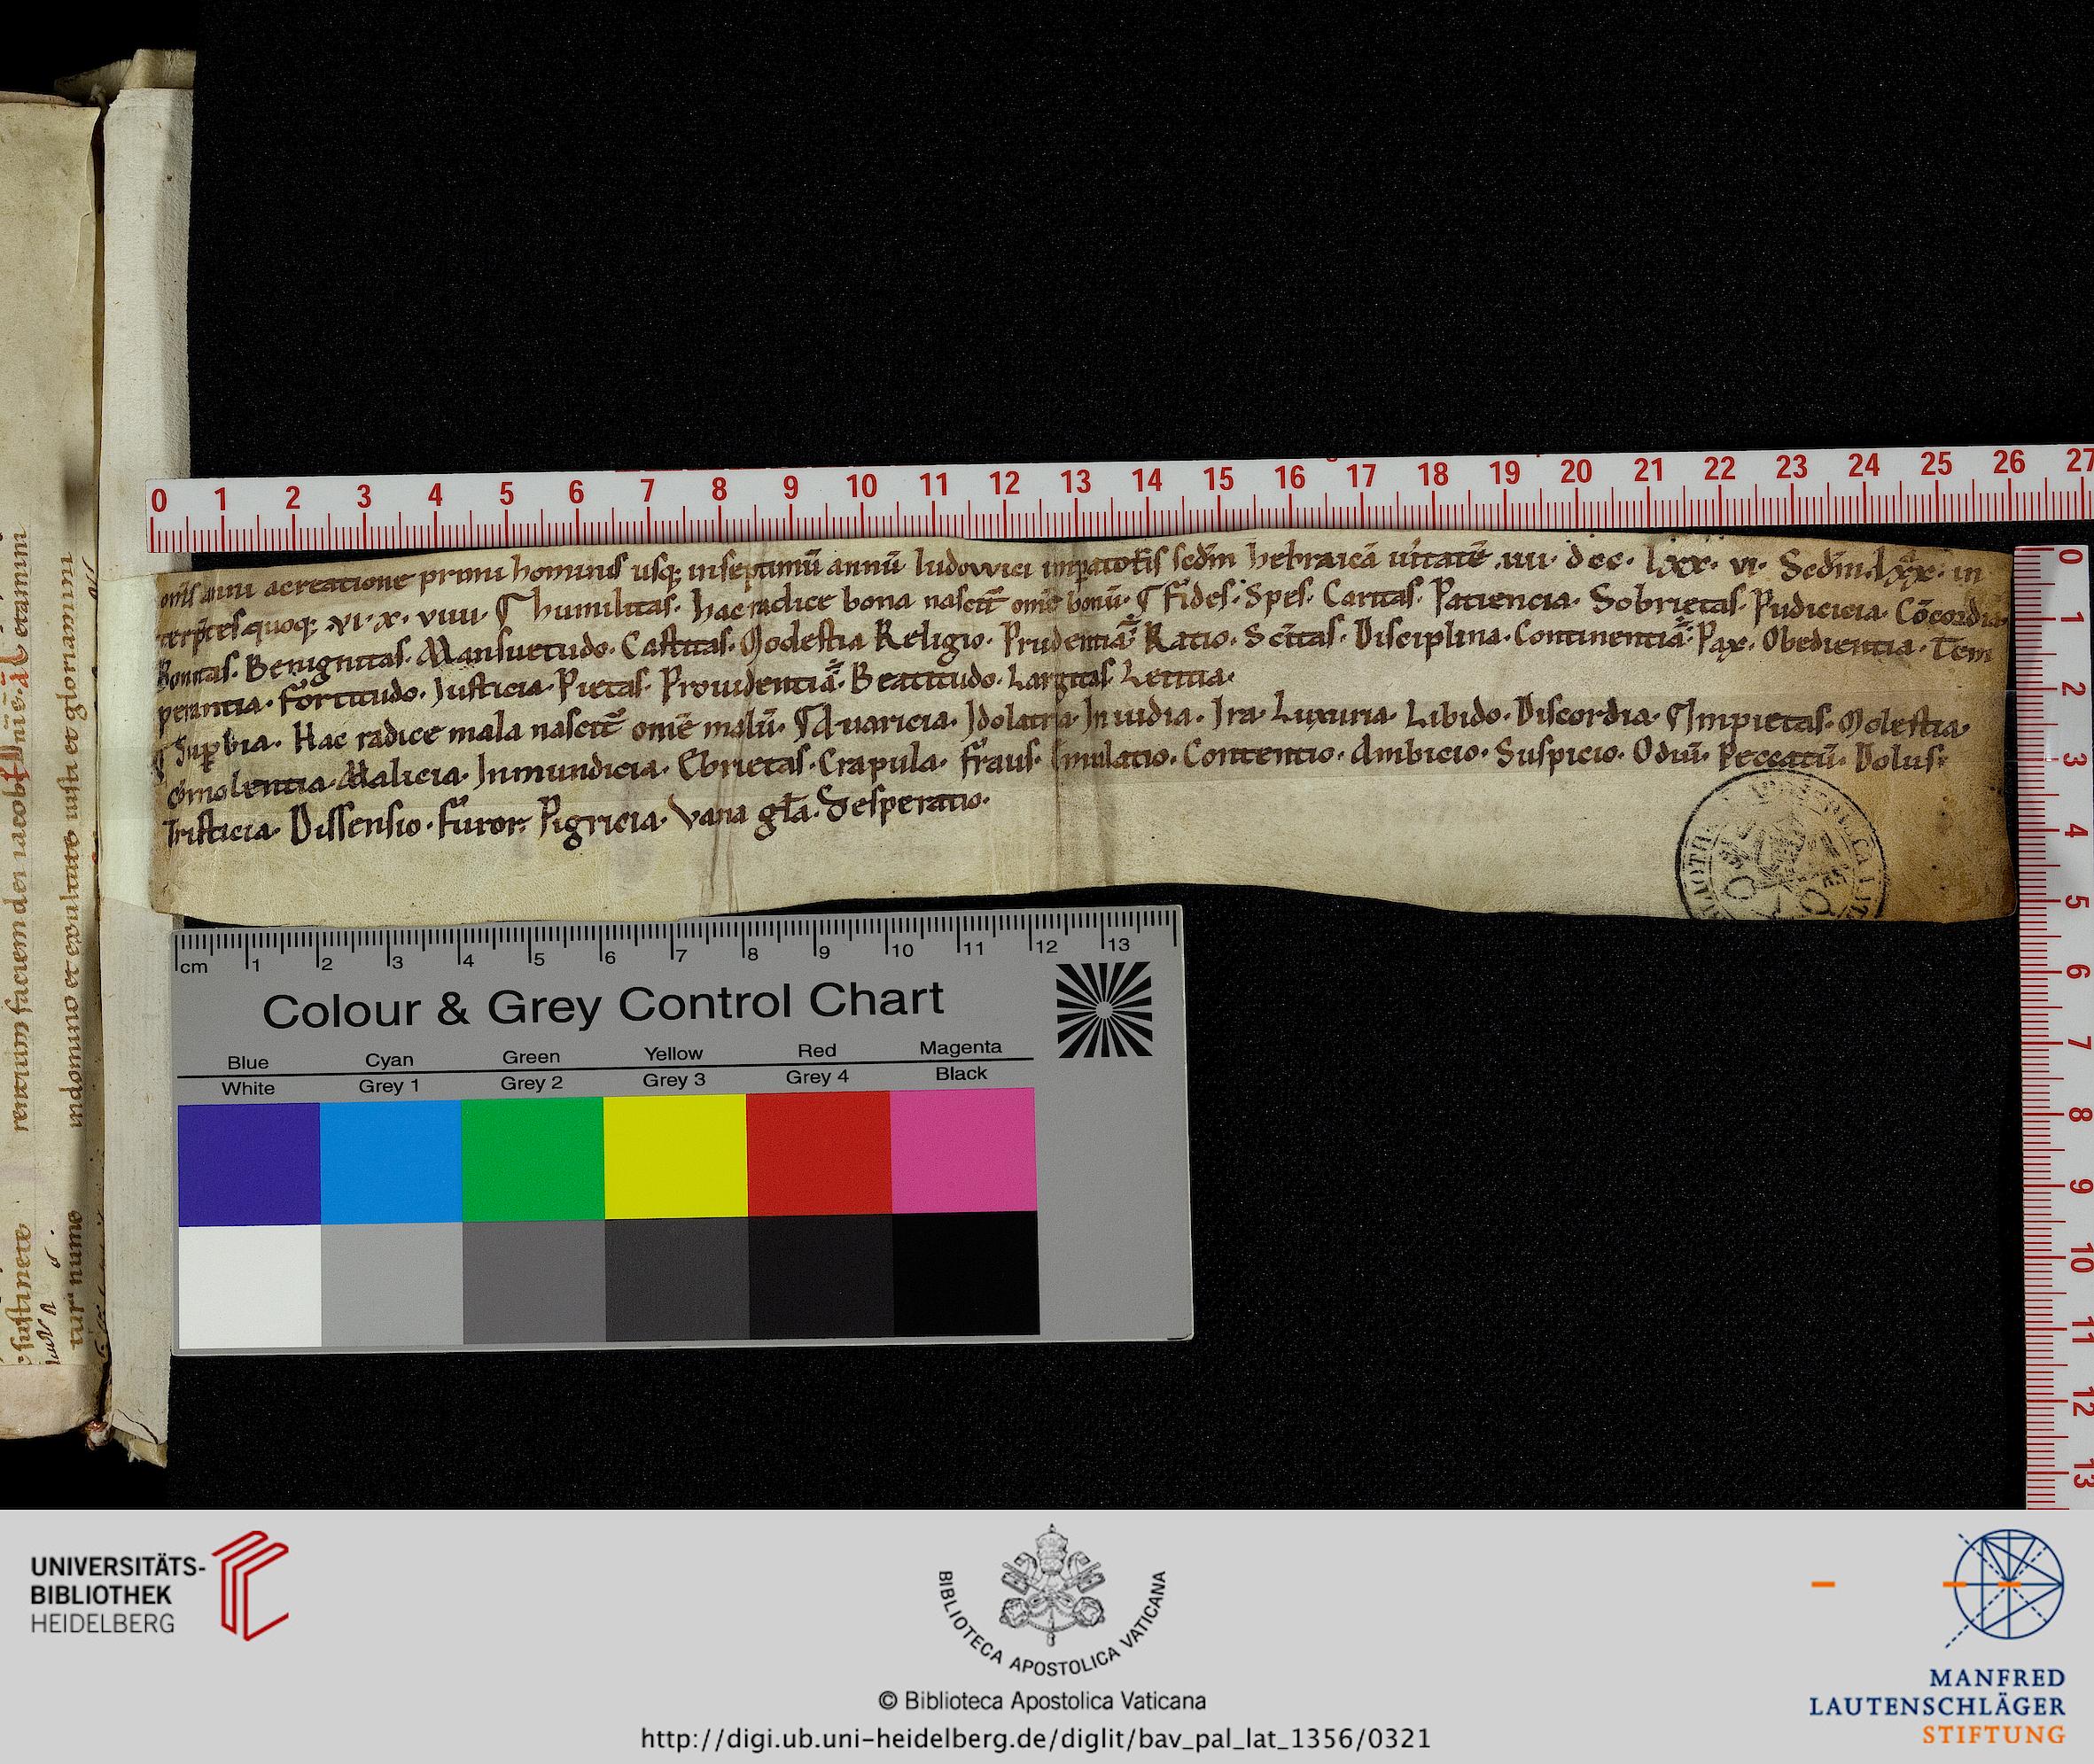 onis anni acreatione primi hominis usq; inseptimū annū ludowici impatoris scdm hebraicā uitatē .uu. dcc. lxx. vi. Scdm. lxx. in
terptes quoq; .vi. x. viiii. ¶ humilitas. hac radice bona nascit̄ omē bonū. ¶ Fides. Spes. Caritas. Paciencia. Sobrietas. Pudicicia. Cōcordia.
Bonitas. Benignitas. Mansuetudo. Castitas. Modestia Religio. Prudentia. Ratio. Scitas. Disciplina. Continentia. Pax. Obedientia. Tem
perantia. Fortitudo. Iusticia. Pietas. Prouidentia. Beatitudo. Largitas. Letitia.
¶ Supbia. Hac radice mala nascit̄ omē malū. ¶ Auaricia. Idolatria. Inuidia. Ira. Luxuria. Libido. Discordia. ¶ Impietas. Molestia.
Malicia. Inmundicia. Ebrietas. Crapula. Fraus. Emulatio. Contentio. Ambicio. Suspicio. Odiū. Peccatū. Dolus.
Tristicia. Dissensio. Furor. Pigricia. Vana gl̄a. Desperatio.
remium faciem dei iacob
indomino et exultate iusti et gloriamini
sustinere
tur nunc
0 1 2 3 4 5 6 7 8 9 10 11 12 13 14 15 16 17 18 19 20 21 22 23 24 25 26 27
0 1 2 3 4 5 6 7 8 9 10 11 12 13
cm 1 2 3 4 5 6 7 8 9 10 11 12 13
Colour & Grey Control Chart
Blue Cyan Green Yellow Red Magenta
White Grey 1 Grey 2 Grey 3 Grey 4 Black
UNIVERSITÄTS-
BIBLIOTHEK
HEIDELBERG
BIBLIOTECA APOSTOLICA VATICANA
© Biblioteca Apostolica Vaticana
http://digi.ub.uni-heidelberg.de/diglit/bav_pal_lat_1356/0321
MANFRED
LAUTENSCHLÄGER
STIFTUNG